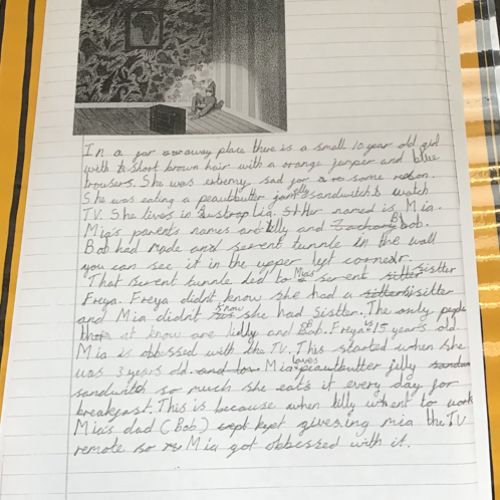 In a far away place there is a small 10 year old girl
with short brown hair with a orange jumper and blue
trousers. She was extremy sad for some reason.
She was eating a peautbutter jelly sandwitch & watch
TV. She lives in Austraplia. Her named is Mia.
Mia's parents names are lilly and Bob.
Bob had made and secrent tunnle in the wall
you can see it in the upper left cornedr.
That secrent tunnle led to Mias secrent sitster
Freya. Freya didnt know she had a sitster
and Mia didnt know she had sister. The only people
that know are lilly and Bob. Freya is 15 years old.
Mia is obbessed with the TV. This started when she
was 3 years old. Mia loves peautbutter jelly
sandwitch so much she eats it every day for
breakfast. This is because when lilly whent to work
Mia's dad (Bob) kept giveing mia the TV
remote so Mia got obbessed with it.